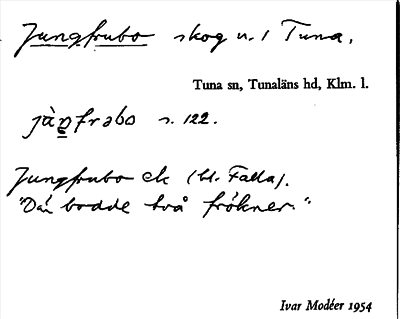 Jungfrubo skog n. 1 Tuna.
Tuna sn, Tunaläns hd, Klm. l.
s. 122.
Jungfrubo ek (bl. Falla).
"Där bodde två frökner."
Ivar Modéer 1954